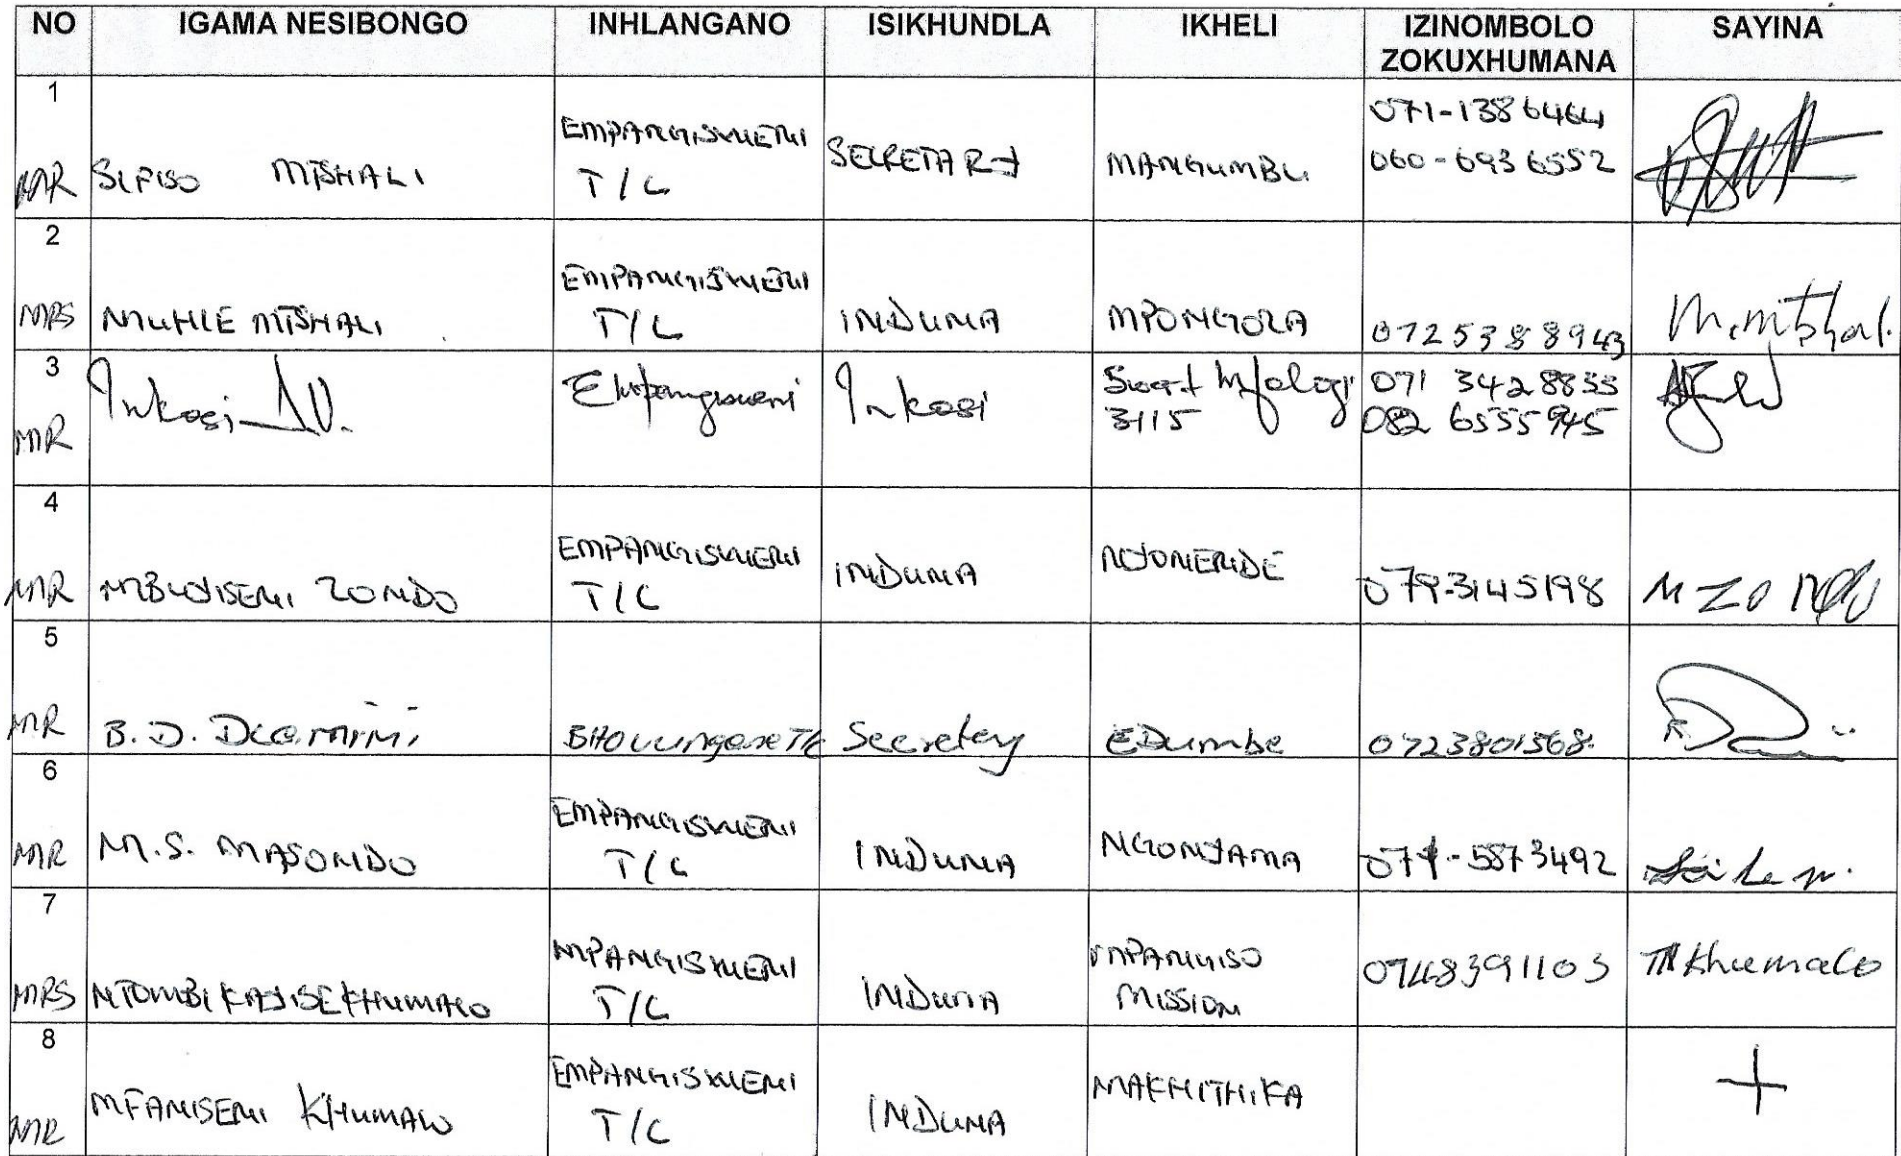 NO IGAMA NESIBONGO INHLANGANO ISIKHUNDLA IKHELI IZINOMBOLO ZOKUXHUMANA SAYINA
1
MR SIPISO MTSHALI EMPANGISWENI T/C SECRETARY MANGUMBU 071-1386464
060-6936552
2
MRS MUHLE MTSHALI EMPANGISWENI T/C INDUNA MPONGOZA 0725388943 M.Mtshali
3
MR Inkosi Empangisweni Inkosi Swart Mfolozi
3115 071 3428833
082 6555945
4
MR MBUYISENI ZONDO EMPANGISWENI T/C INDUNA NJOMENDE 0793145198 M ZONDO
5
MR B.D. Dlamini Edumbe Secretary 0723801568
6
MR M.S. MASONDO EMPANGISWENI T/C INDUNA NGONYAMA 071-5873492
7
MRS NTOMBIKAYISE KHUMALO MPANGISWENI T/C INDUNA MPANGISO
MISSION 0748391103 TN Khumalo
8
MR MFANISENI KHUMALO EMPANGISWENI T/C INDUNA MAKHITHIKA +